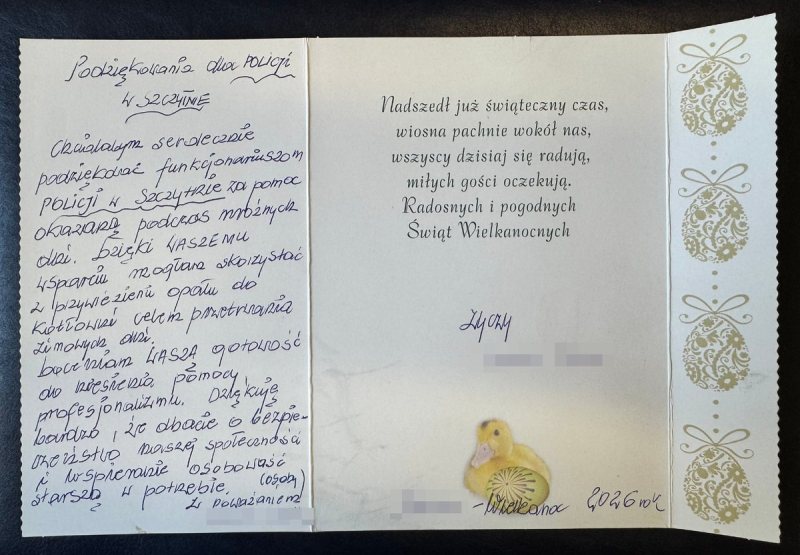 Podziękowania dla POLICJI
W SZCZYTNIE
Chciałabym serdecznie
podziękować funkcjonariuszom
POLICJI W SZCZYTNIE za pomoc
okazaną podczas mroźnych
dni. Dzięki WASZEMU
wsparciu mogłam skorzystać
z przywiezienia opału do
kotłowni celem przetrwania
zimowych dni.
Doceniam WASZĄ gotowość
do niesienia pomocy
profesjonalizmu. Dziękuję
bardzo, że dbacie o bezpie-
czeństwo naszej społeczności
i wspieranie osobowość
starszą w potrzebie. (osobę)
Z poważaniem
Nadszedł już świąteczny czas,
wiosna pachnie wokół nas,
wszyscy dzisiaj się radują,
miłych gości oczekują.
Radosnych i pogodnych
Świąt Wielkanocnych
życzy
-Wielkanoc 2026 rok